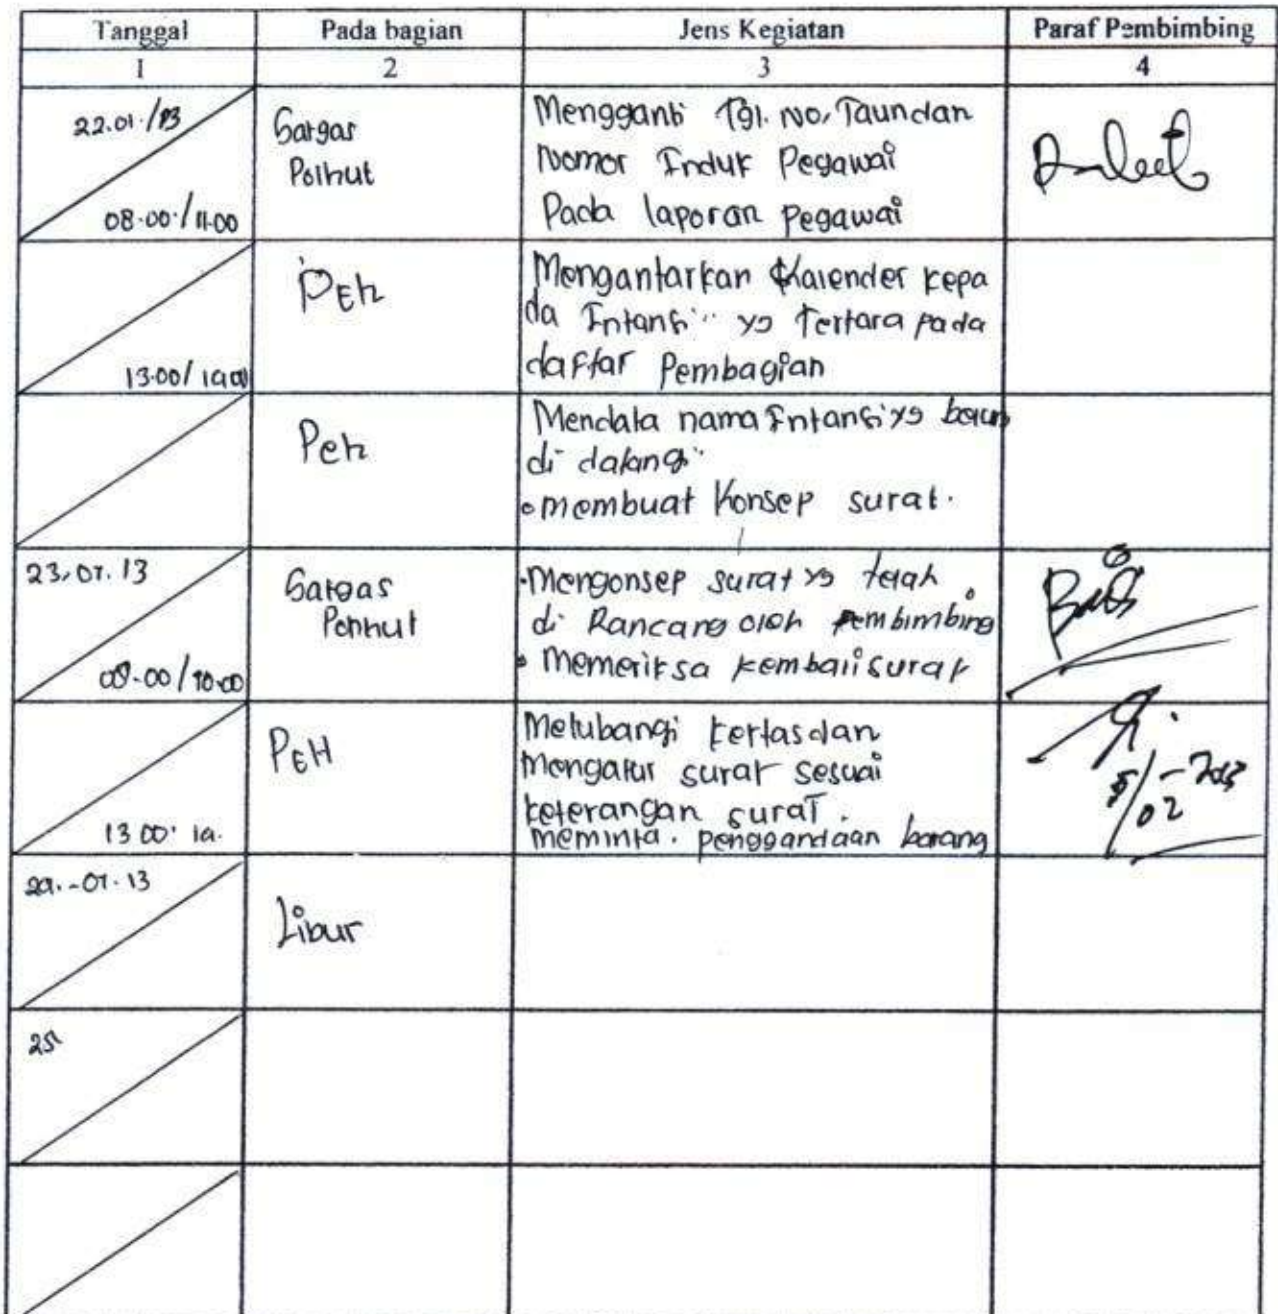 Tanggal Pada bagian Jens Kegiatan Paraf Pembimbing
1 2 3 4
22.01./13
08.00./11.00
Satgas
Polhut
Mengganti Tgl. No, Taun dan
Nomor Induk Pegawai
Pada laporan pegawai
13.00/
PEh
Mengantarkan Kalender kepa
da Intansi" yg Tertara pada
daftar Pembagian
Peh
Mendata nama Intansi yg belum
di datangi
• membuat Konsep surat.
23.01.13
08.00/10.00
Satgas
Polhut
• Mengonsep surat yg telah
di Rancang oleh pembimbing
• Memeriksa kembali surat
13.00
PEH
Melubangi kertas dan
mengatur surat sesuai
keterangan surat.
meminta. penggandaan barang
5/02 - 2013
24.-01.13
Libur
25